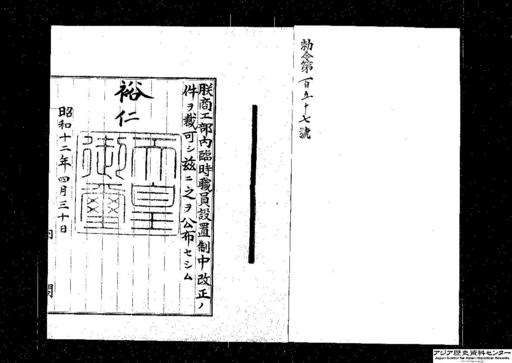 勅令第百五十七號
朕商工部内臨時職員設置制中改正ノ
件ヲ裁可シ茲ニ之ヲ公布セシム
裕仁
天皇御璽
昭和十二年四月三十日
内閣
アジア歴史資料センター
Japan Center for Asian Historical Records